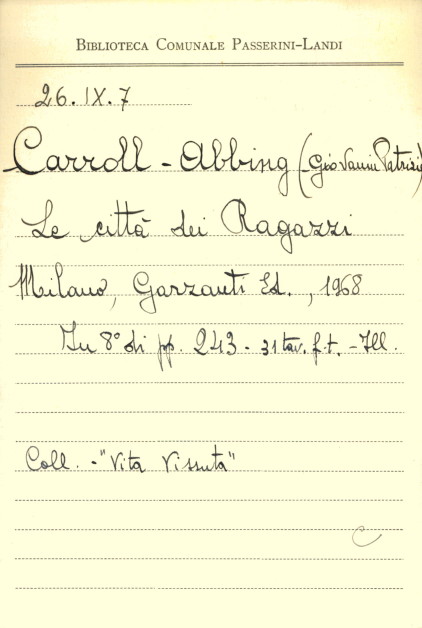 BIBLIOTECA COMUNALE PASSERINI-LANDI
26. IX. 7
Carroll - Abbing (Giovanni Patrizio)
Le città dei Ragazzi
Milano, Garzanti Ed., 1968
In 8° di pp. 243 - 31 tav. f.t. - Ill.
Coll. - "Vita Vissuta"
C